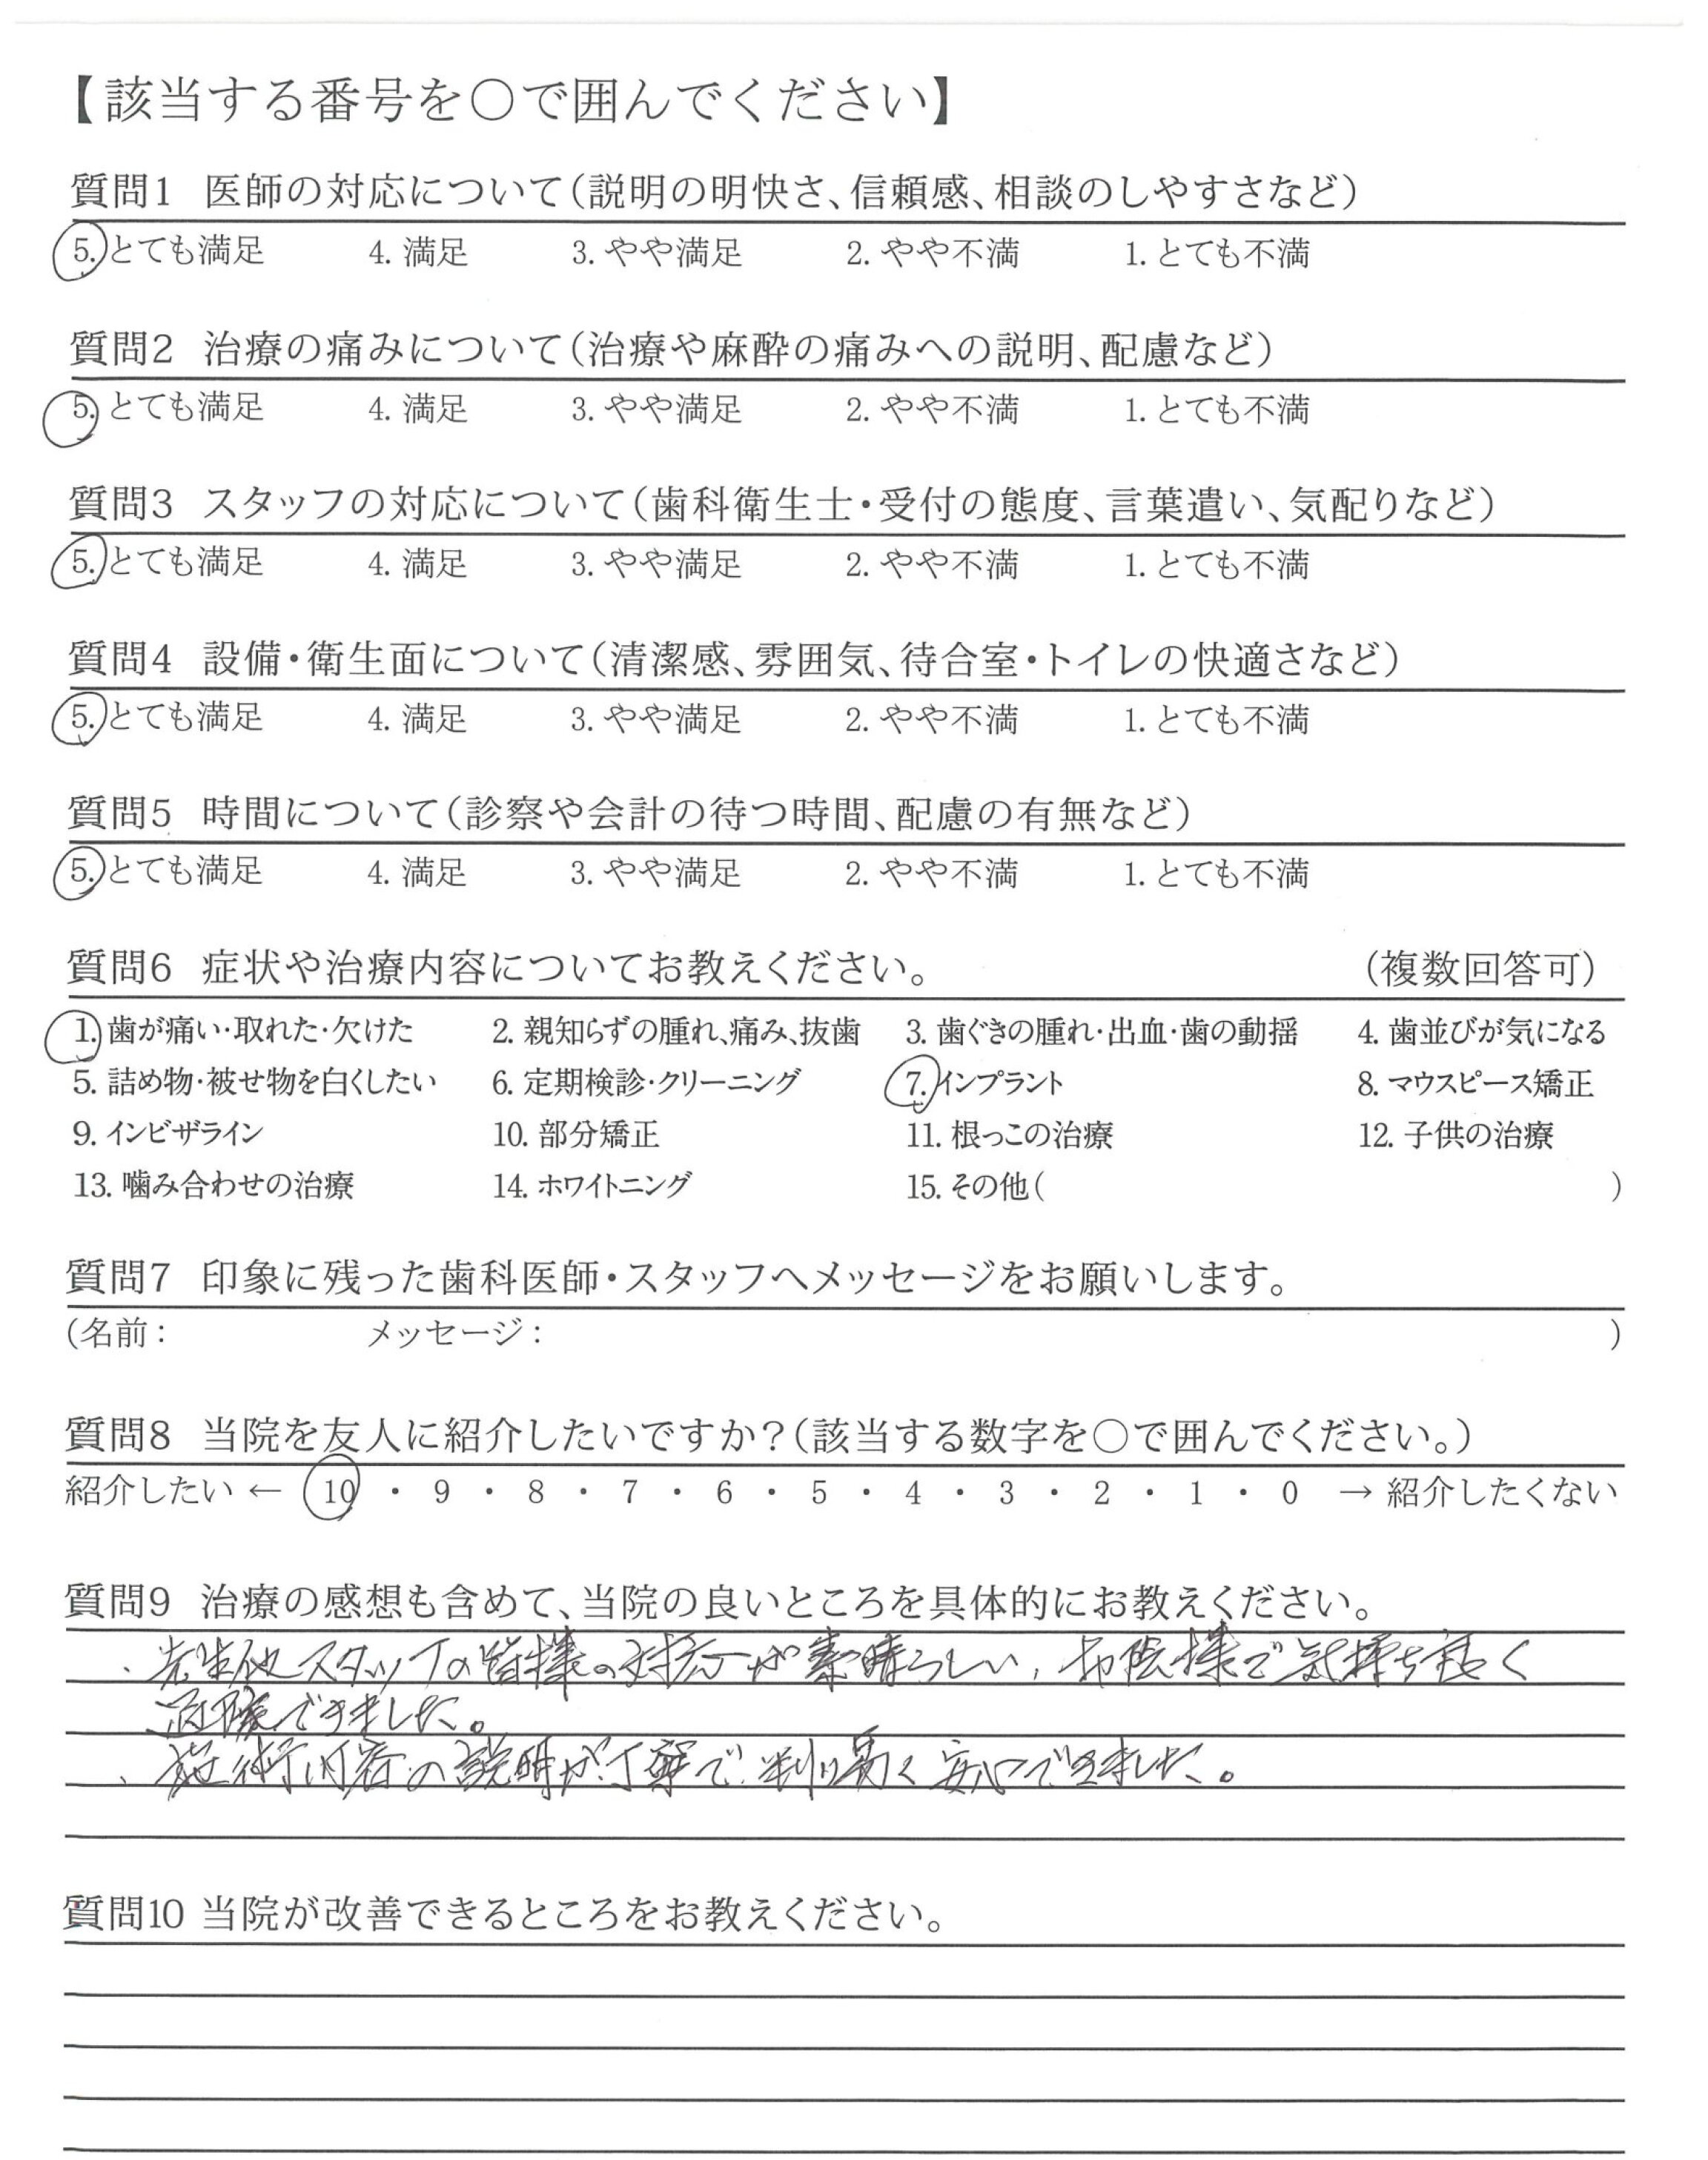 【該当する番号を〇で囲んでください】
質問1 医師の対応について(説明の明快さ、信頼感、相談のしやすさなど)
5. とても満足 4. 満足 3. やや満足 2. やや不満 1. とても不満
質問2 治療の痛みについて(治療や麻酔の痛みへの説明、配慮など)
5. とても満足 4. 満足 3. やや満足 2. やや不満 1. とても不満
質問3 スタッフの対応について(歯科衛生士・受付の態度、言葉遣い、気配りなど)
5. とても満足 4. 満足 3. やや満足 2. やや不満 1. とても不満
質問4 設備・衛生面について(清潔感、雰囲気、待合室・トイレの快適さなど)
5. とても満足 4. 満足 3. やや満足 2. やや不満 1. とても不満
質問5 時間について(診察や会計の待つ時間、配慮の有無など)
5. とても満足 4. 満足 3. やや満足 2. やや不満 1. とても不満
質問6 症状や治療内容についてお教えください。 (複数回答可)
1. 歯が痛い・取れた・欠けた 2. 親知らずの腫れ、痛み、抜歯 3. 歯ぐきの腫れ・出血・歯の動揺 4. 歯並びが気になる
5. 詰め物・被せ物を白くしたい 6. 定期検診・クリーニング 7. インプラント 8. マウスピース矯正
9. インビザライン 10. 部分矯正 11. 根っこの治療 12. 子供の治療
13. 噛み合わせの治療 14. ホワイトニング 15. その他( )
質問7 印象に残った歯科医師・スタッフへメッセージをお願いします。
(名前: メッセージ: )
質問8 当院を友人に紹介したいですか?(該当する数字を〇で囲んでください。)
紹介したい ← 10 ・ 9 ・ 8 ・ 7 ・ 6 ・ 5 ・ 4 ・ 3 ・ 2 ・ 1 ・ 0 → 紹介したくない
質問9 治療の感想も含めて、当院の良いところを具体的にお教えください。
・先生他スタッフの皆様の対応が素晴らしい、で気持ち良く
治療できました。
・施術内容の説明が丁寧で判り易く安心できました。
質問10 当院が改善できるところをお教えください。